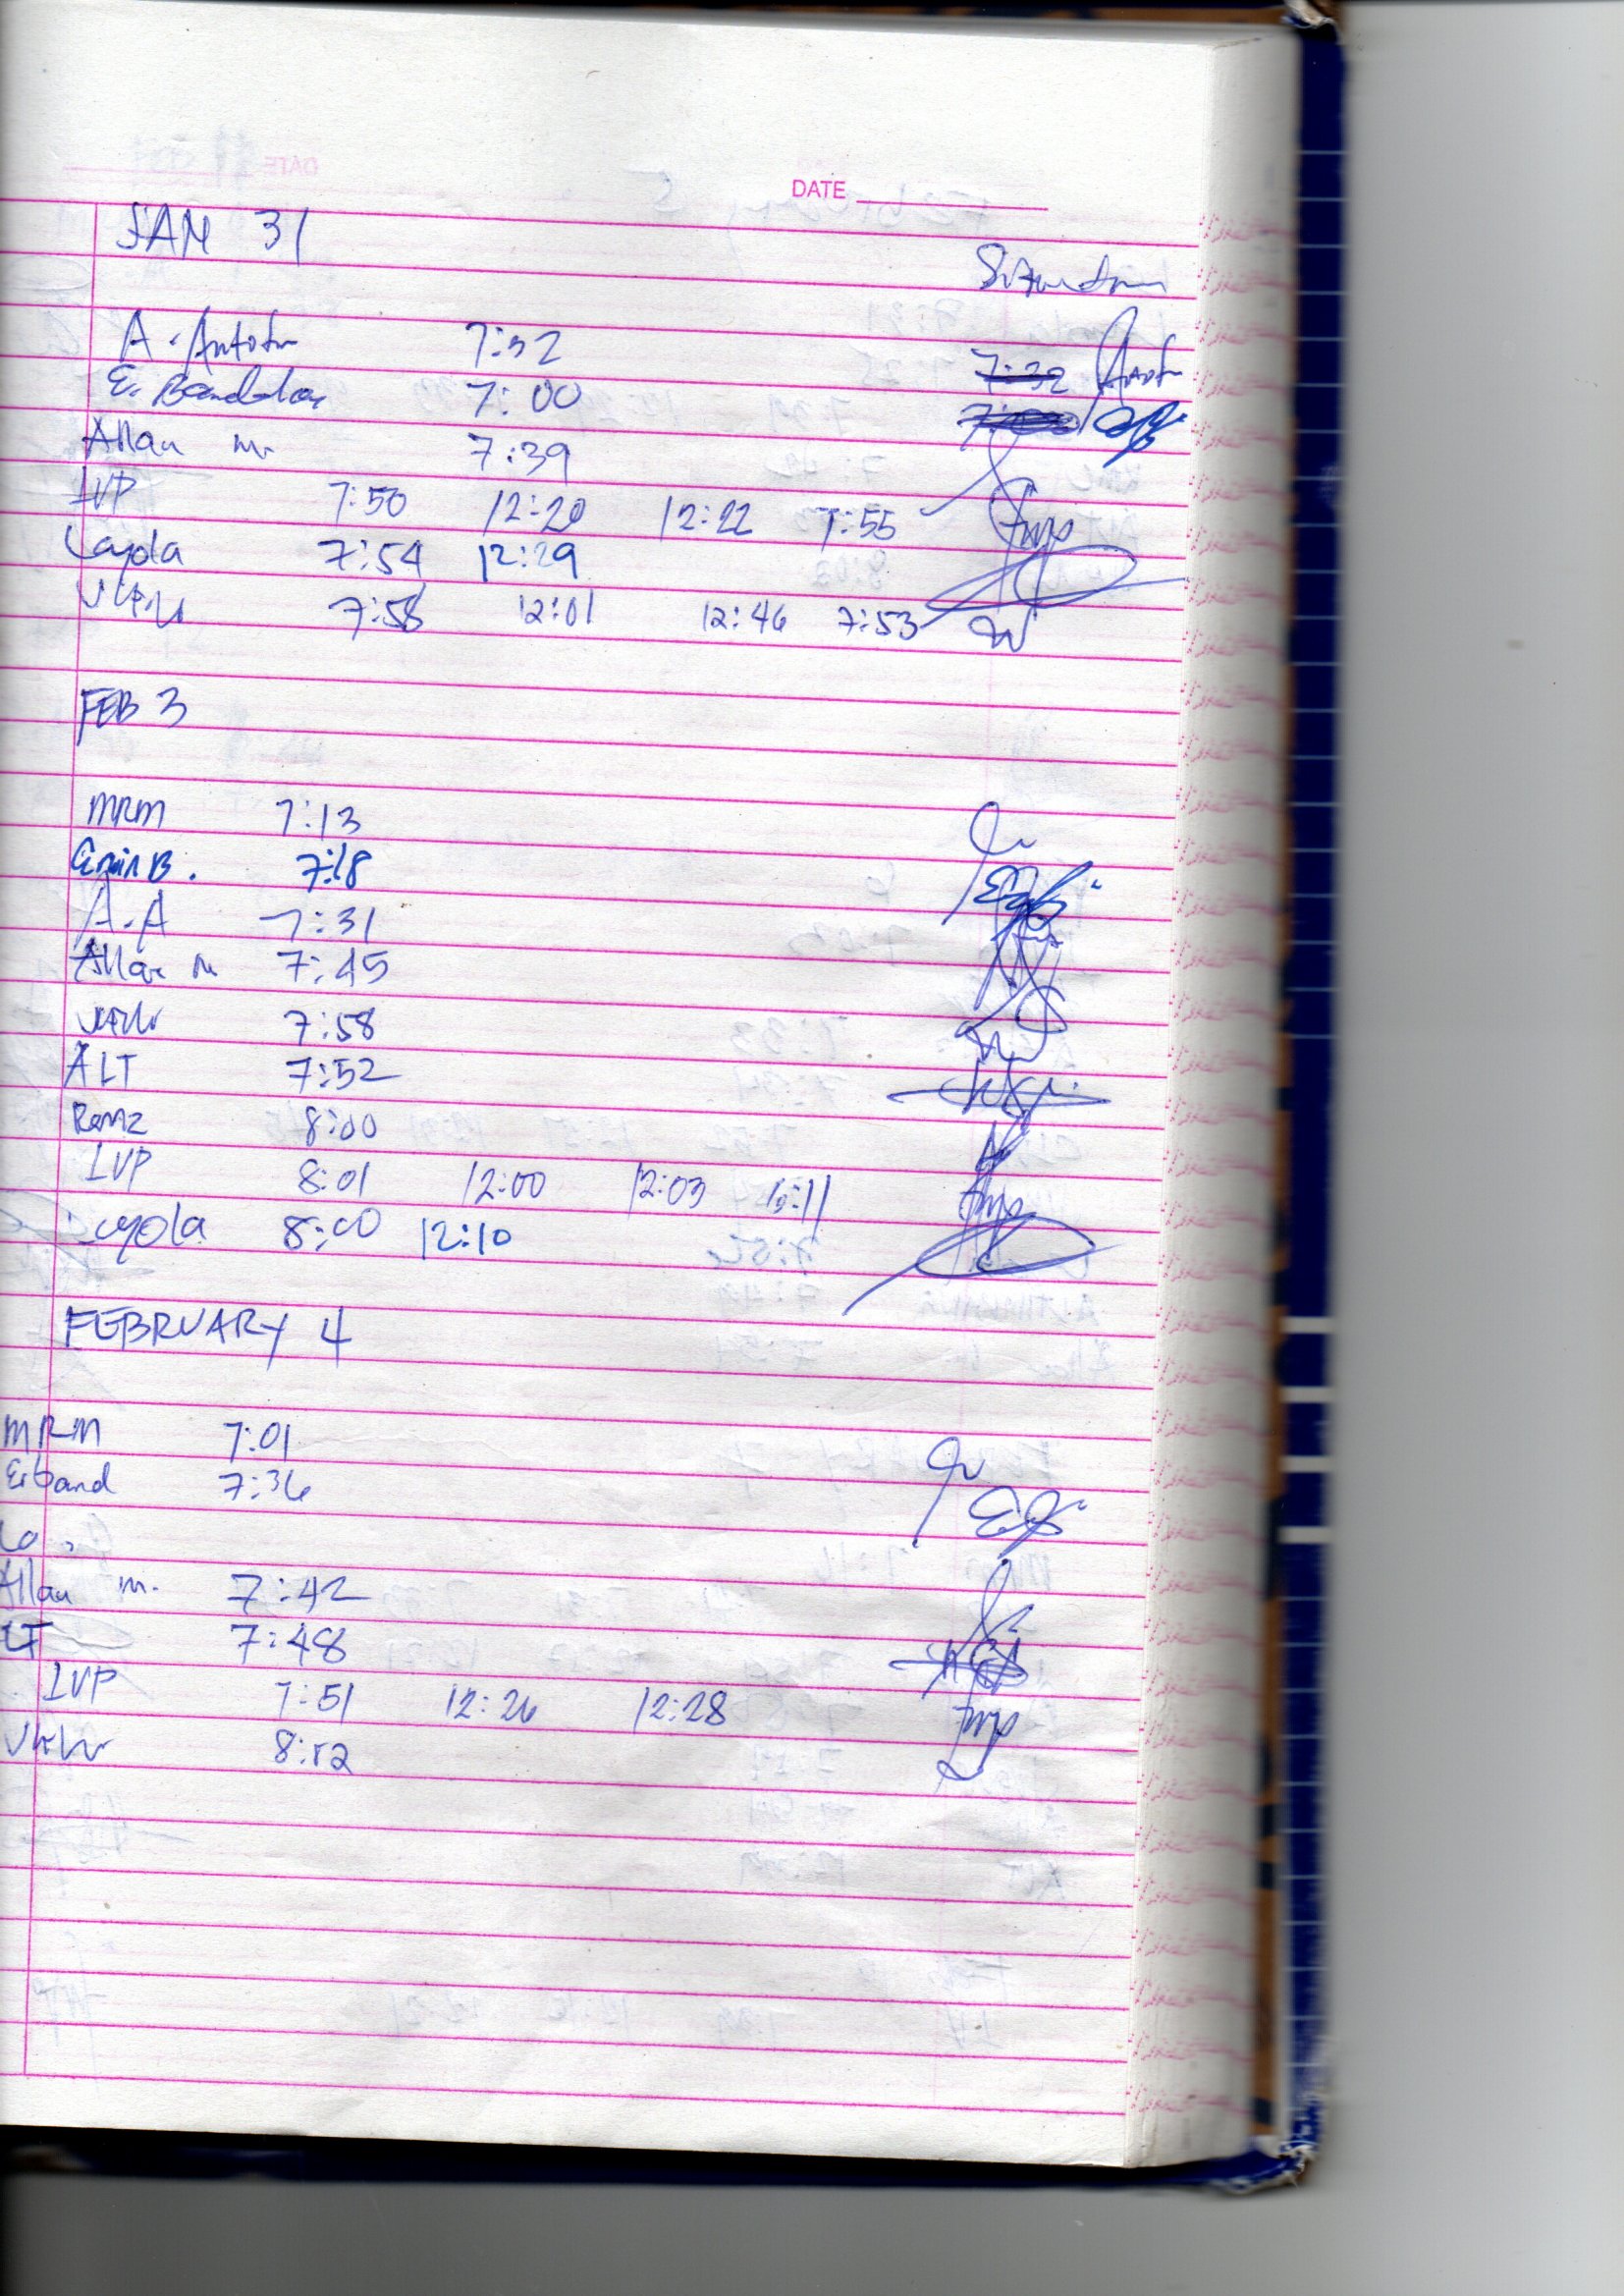 DATE
JAN 31
A. Antotn 7:32 7:32
E. Bandola 7:00
Allan m. 7:39
IVP 7:50 12:20 12:22 7:55
Loyola 7:54 12:29
7:58 12:01 12:46 7:53
FEB 3
MRM 7:13
Erwin B. 7:18
A.A 7:31
Allan m 7:45
7:58
ALT 7:52
Renz 8:00
IVP 8:01 12:00 12:03
Loyola 8:00 12:10
FEBRUARY 4
MRM 7:01
Erband 7:36
Lo
Allan m. 7:42
LT 7:48
IVP 7:51 12:26 12:28
8:12